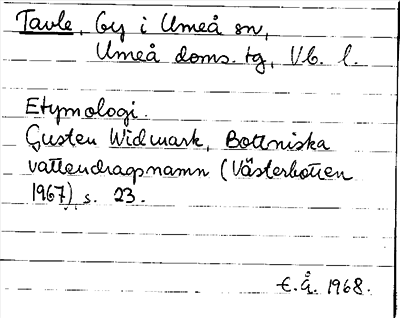 Tavle, by i Umeå sn,
Umeå doms. tg, Vb. l.
Etymologi.
Gusten Widmark, Bottniska
vattendragsnamn (Västerbotten
1967) s. 23.
E. Å. 1968.